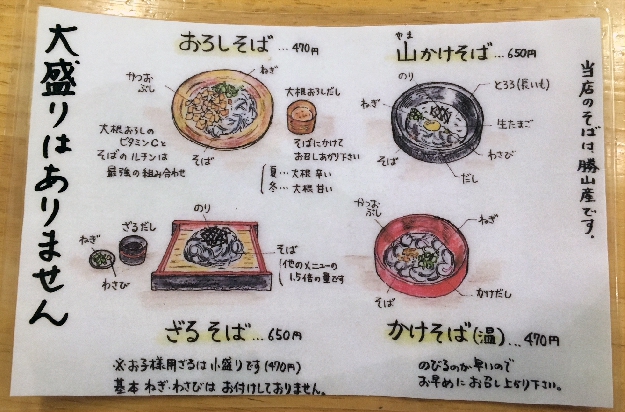 大盛りはありません
おろしそば…470円
かつおぶし
ねぎ
大根おろしだし
大根おろしの
ビタミンCと
そばのルチンは
最強の組み合わせ
そば
そばにかけて
お召しあがり下さい
夏…大根 辛い
冬…大根 甘い
やま
山かけそば…650円
のり
とろろ(長いも)
ねぎ
生たまご
わさび
そば
だし
当店のそばは、勝山産です。
のり
ざるだし
ねぎ
わさび
そば
他のメニューの
1.5倍の量です
ざるそば…650円
※お子様用ざるは小盛りです(470円)
基本 ねぎ・わさびは お付けしておりません。
かつおぶし
ねぎ
そば
かけだし
かけそば(温)…470円
のびるのが早いので
お早めにお召し上がり下さい。